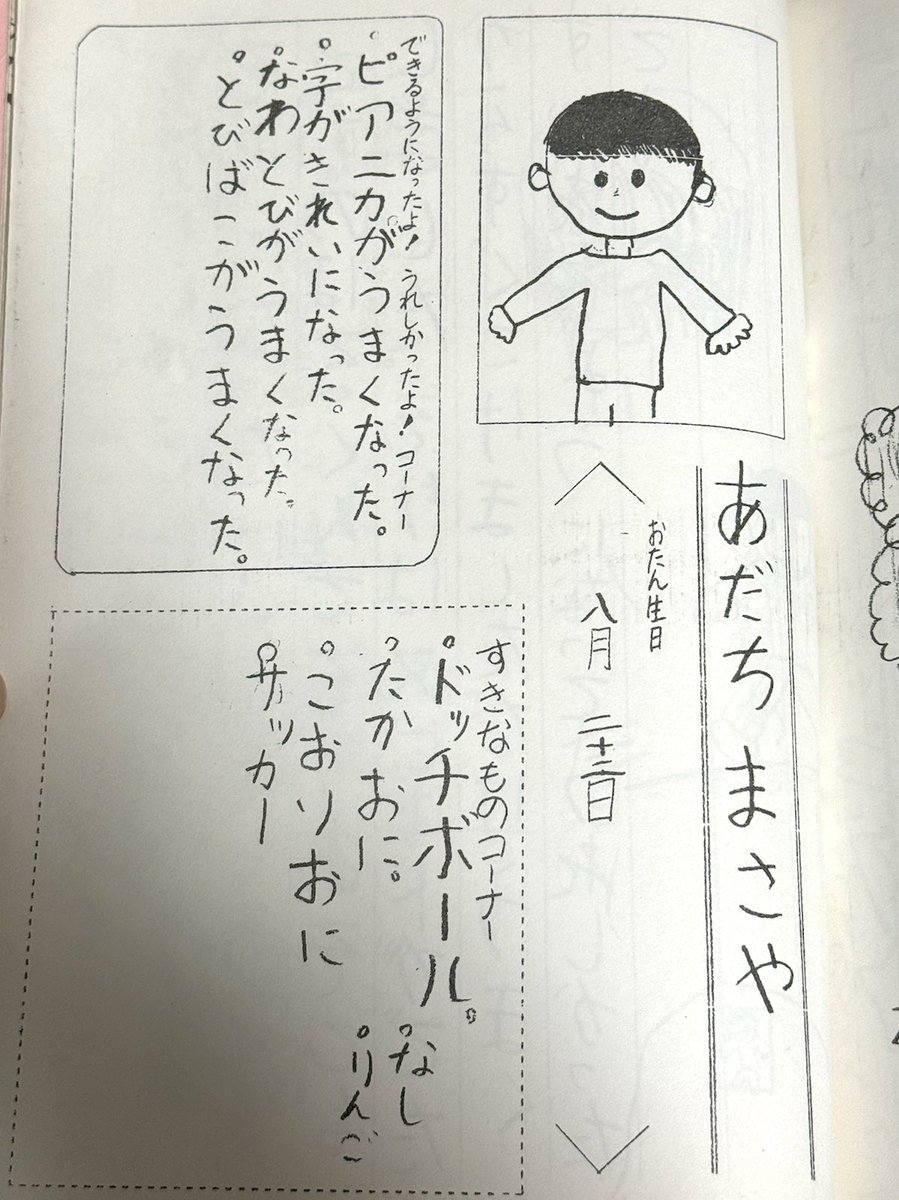 あだち まさや
おたん生日
八月 二十二日
できるようになったよ！うれしかったよ！コーナー
・ピアニカがうまくなった。
・字がきれいになった。
・なわとびがうまくなった。
・とびばこがうまくなった。
すきなものコーナー
・ドッチボール。
・たかおに。
・こおりおに
・サッカー
・なし
・りんご